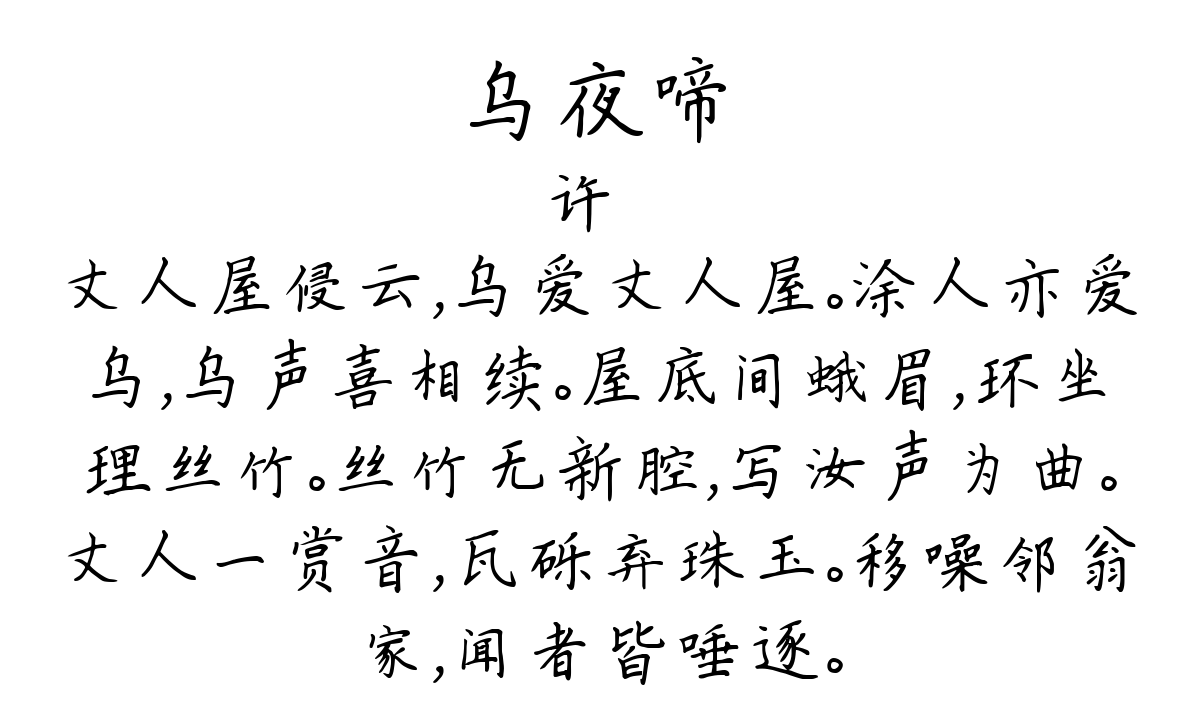 乌夜啼
许
丈人屋侵云,乌爱丈人屋。涂人亦爱
乌,乌声喜相续。屋底间蛾眉,环坐
理丝竹。丝竹无新腔,写汝声为曲。
丈人一赏音,瓦砾弃珠玉。移噪邻翁
家,闻者皆唾逐。